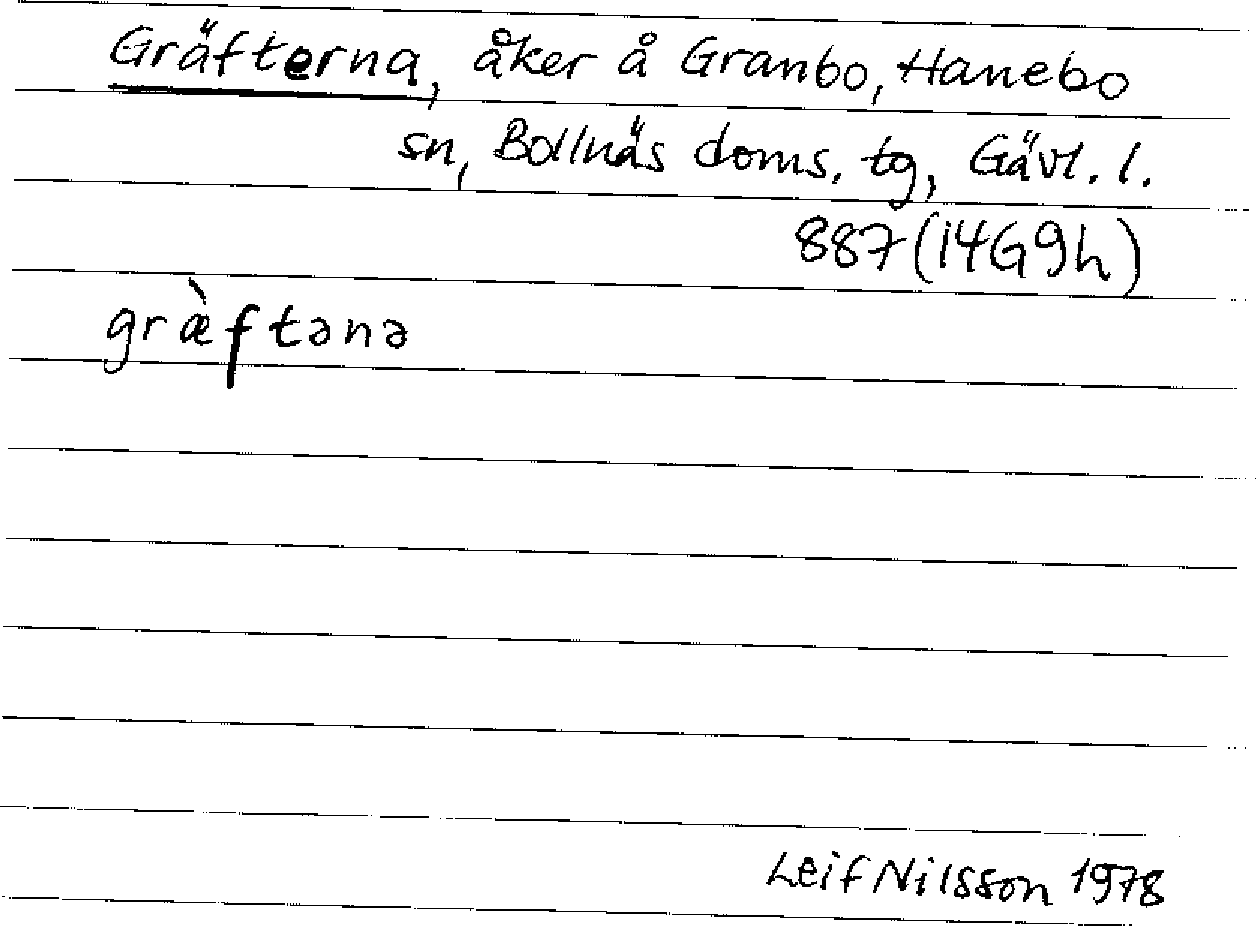 Gräfterna, åker å Granbo, Hanebo
sn, Bollnäs doms. tg, Gävl. l.
887 (14G9h)
græ̀ftənə
Leif Nilsson 1978